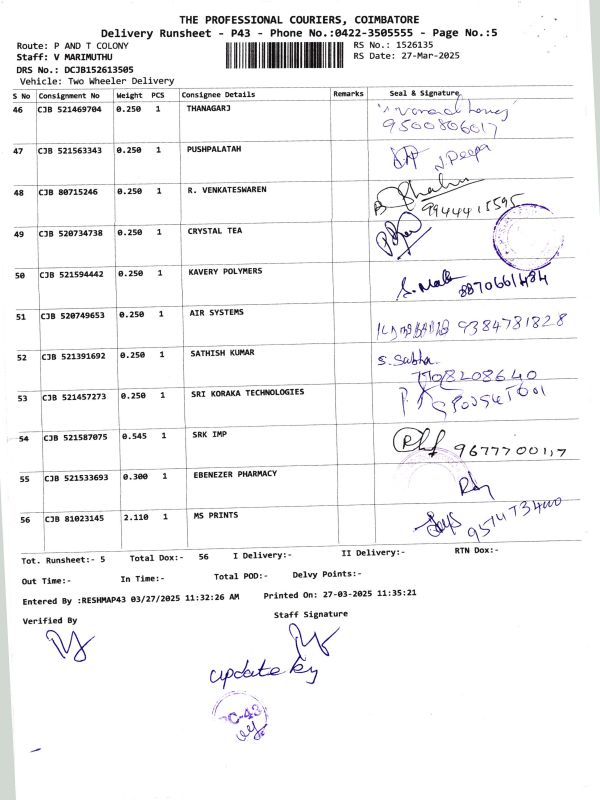 THE PROFESSIONAL COURIERS, COIMBATORE
Delivery Runsheet - P43 - Phone No.:0422-3505555 - Page No.:5
Route: P AND T COLONY
RS No.: 1526135
Staff: V MARIMUTHU
RS Date: 27-Mar-2025
DRS No.: DCJB152613505
Vehicle: Two Wheeler Delivery
S No Consignment No Weight PCS Consignee Details Remarks Seal & Signature
46 CJB 521469704 0.250 1 THANAGARJ
9500806017
47 CJB 521563343 0.250 1 PUSHPALATAH J. Deepa
48 CJB 80715246 0.250 1 R. VENKATESWAREN
9944415595
49 CJB 520734738 0.250 1 CRYSTAL TEA
50 CJB 521594442 0.250 1 KAVERY POLYMERS
8870661484
51 CJB 520749653 0.250 1 AIR SYSTEMS 9384781828
52 CJB 521391692 0.250 1 SATHISH KUMAR S. Subha
7708208640
53 CJB 521457273 0.250 1 SRI KORAKA TECHNOLOGIES
54 CJB 521587075 0.545 1 SRK IMP
55 CJB 521533693 0.300 1 EBENEZER PHARMACY
56 CJB 81023145 2.110 1 MS PRINTS
Tot. Runsheet:- 5 Total Dox:- 56 I Delivery:- II Delivery:- RTN Dox:-
Out Time:- In Time:- Total POD:- Delvy Points:-
Entered By :RESHMAP43 03/27/2025 11:32:26 AM Printed On: 27-03-2025 11:35:21
Verified By Staff Signature
update by
C-43